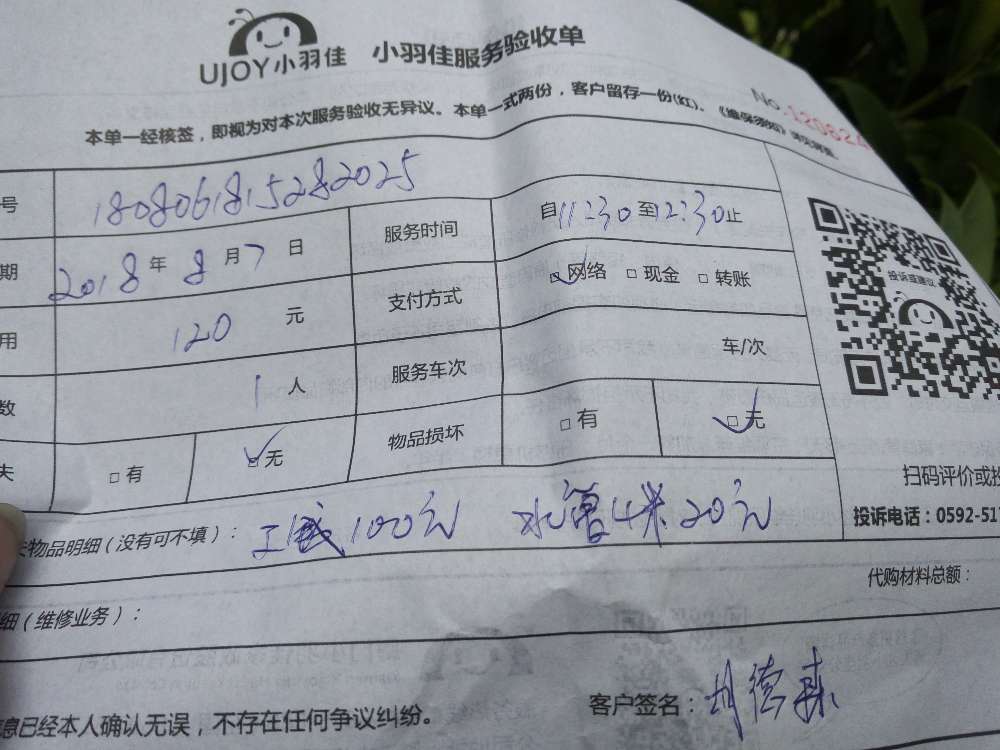 UJOY小羽佳 小羽佳服务验收单
本单一经核签，即视为对本次服务验收无异议。本单一式两份，客户留存一份(红)。《维保须知》详见背面
No.120624
号 1808061815282025
期 2018年8月7日 服务时间 自11:30至12:30止
用 120元 支付方式 网络 现金 转账
数 1人 服务车次 车/次
夫 有 无 物品损坏 有 无
投诉或建议
扫码评价或投
投诉电话：0592-517
物品明细(没有可不填)： 工钱100元 水管4米20元
代购材料总额：
细(维修业务)：
息已经本人确认无误，不存在任何争议纠纷。 客户签名：胡德来